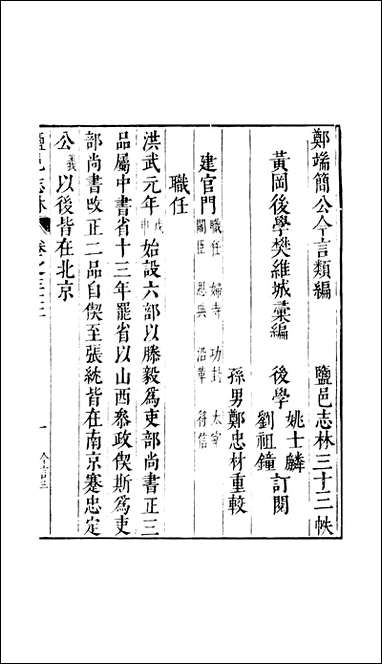 鄭端簡公今言類編　鹽邑志林三十二帙
黃岡後學樊維城彙編　後學 姚士麟 劉祖鐘 訂閱
孫男鄭忠材重較
建官門 職任 婦寺 功封 太宰
閹臣 恩典 沿革 符信
職任
洪武元年戊申始設六部以滕毅為吏部尚書正三
品屬中書省十三年罷省以山西參政偰斯為吏
部尚書改正二品自偰至張紞皆在南京蹇忠定
公義以後皆在北京
鹽邑志林 卷之三十二 一